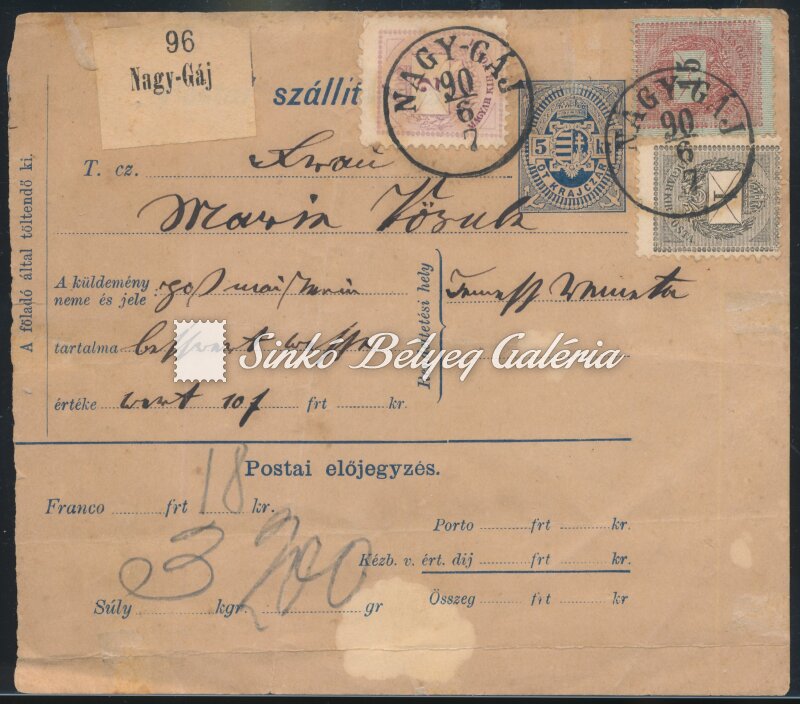 96
Nagy-Gáj
szállít
NAGY-GÁJ
90
6
7
MAGYAR KIR. POSTA
5 kr
ÖT KRAJCZÁR
15
NAGY-GÁJ
90
6
7
1
MAGYAR KIR. POSTA
A föladó által töltendő ki.
T. cz. Frau
Maria
A küldemény
neme és jele
Rendeltetési hely
tartalma
értéke wert 10 f frt kr.
Sinkó Bélyeg Galéria
Postai előjegyzés.
Franco frt 18 kr.
Porto frt kr.
Kézb. v. ért. díj frt kr.
Súly 3 kgr. 200 gr
Összeg frt kr